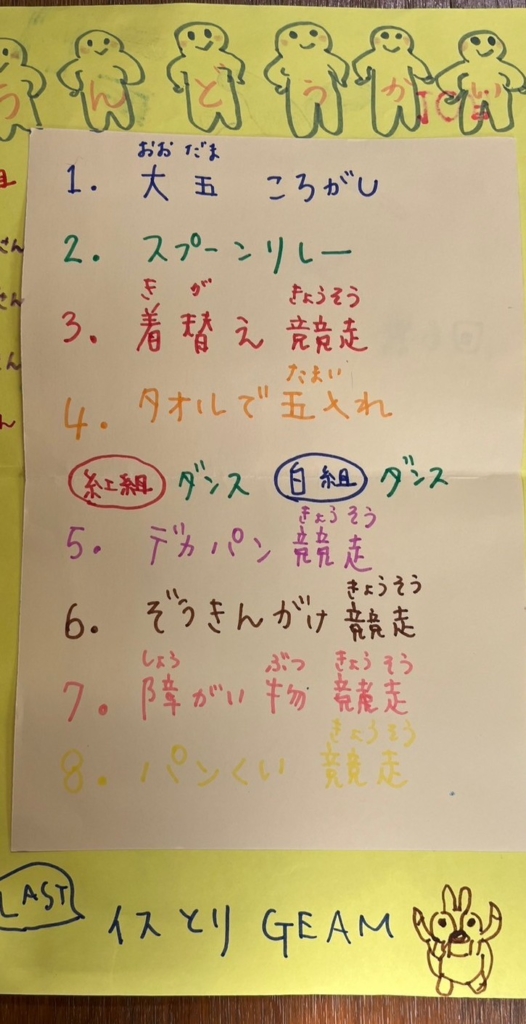 うんどうかい
おおだま
1. 大五 ころがし
2. スプーンリレー
きが きょうそう
3. 着替え 競走
たまい
4. タオルで五入れ
紅組 ダンス 白組 ダンス
きょうそう
5. デカパン 競走
きょうそう
6. ぞうきんがけ 競走
しょう ぶつ きょうそう
7. 障がい物 競走
きょうそう
8. パンくい 競走
LAST イスとり GEAM